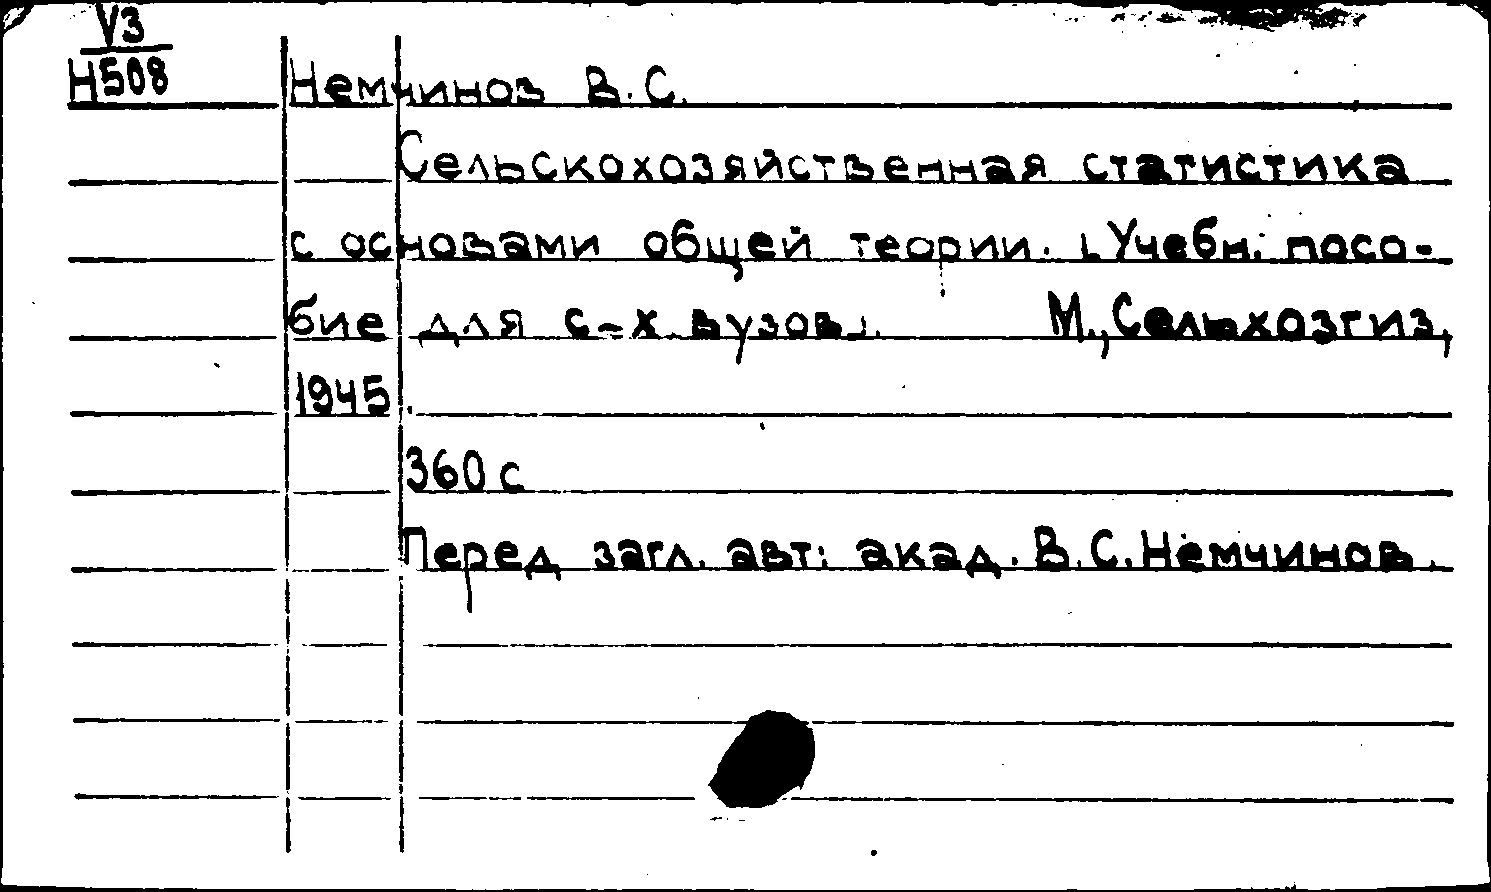 У3
Н508
Немчинов В.С.
Сельскохозяйственная статистика
с основами общей теории. [Учебн. посо-
бие для с-х вузов]. М., Сельхозгиз,
1945.
360 с
Перед загл. авт: акад. В.С. Немчинов.